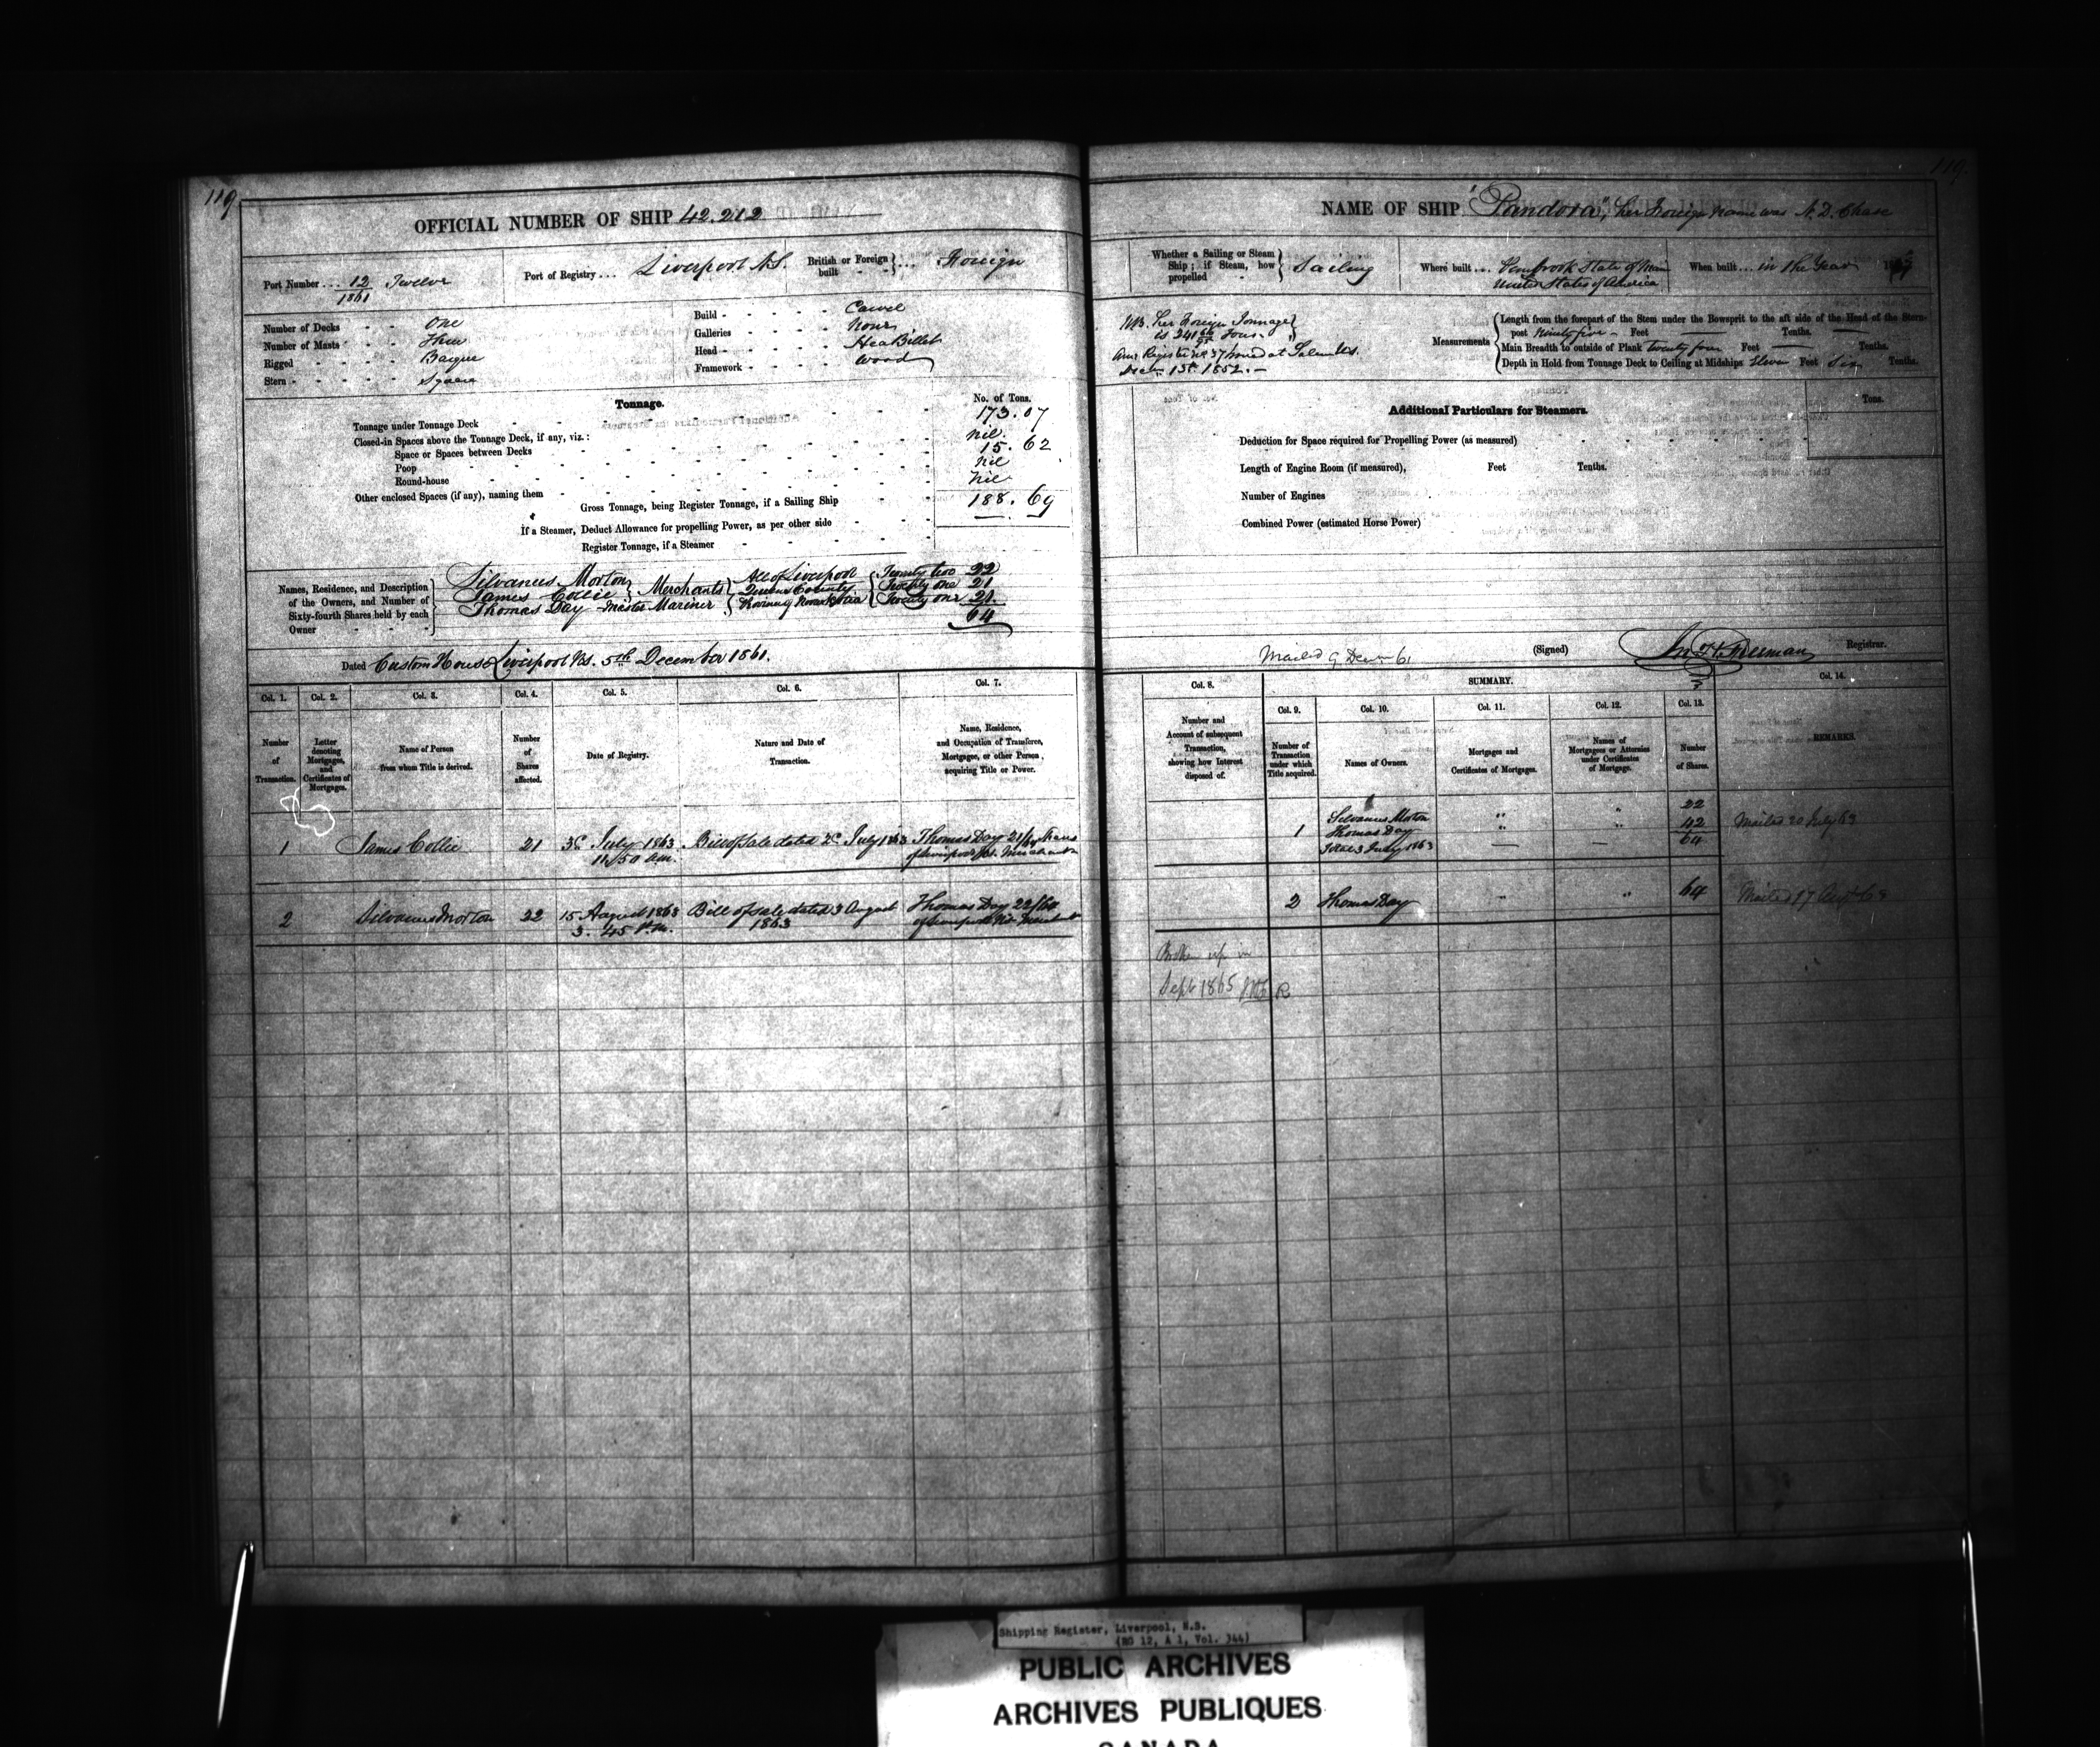 119
OFFICIAL NUMBER OF SHIP 42.212
Port Number ... 12/1861 Twelve
Port of Registry ... Liverpool N.S.
British or Foreign built ... Foreign
Number of Decks - - One
Number of Masts - - Three
Rigged - - - - Barque
Stern - - - - - Square
Build - - - - - Carvel
Galleries - - - - None
Head - - - - - Hea Billet
Framework - - - - Wood
Tonnage.
No. of Tons.
Tonnage under Tonnage Deck 173.07
Closed-in Spaces above the Tonnage Deck, if any, viz.:
nil.
Space or Spaces between Decks 15.62
Poop nil
Round-house nil
Other enclosed Spaces (if any), naming them
Gross Tonnage, being Register Tonnage, if a Sailing Ship 188.69
If a Steamer, Deduct Allowance for propelling Power, as per other side
Register Tonnage, if a Steamer
Names, Residence, and Description of the Owners, and Number of Sixty-fourth Shares held by each Owner
Silvanus Morton } Merchants { All of Liverpool { Twenty two 22
James Collie } Queens County { Twenty one 21
Thomas Day - Master Mariner } Province Nova Scotia { Twenty one 21.
64
Dated Custom House Liverpool NS. 5th December 1861.
Col. 1. Col. 2. Col. 3. Col. 4. Col. 5. Col. 6. Col. 7.
Number of Transaction.
Letter denoting Mortgages, and Certificates of Mortgages.
Name of Person from whom Title is derived.
Number of Shares affected.
Date of Registry.
Nature and Date of Transaction.
Name, Residence, and Occupation of Transferee, Mortgagee, or other Person acquiring Title or Power.
1 James Collie 21 3d July 1863 Bill of Sale dated 2d July 1863 Thomas Day 21/64 Shares
11/50 am. of Liverpool NS. Merchant
2 Silvanus Morton 22 15 August 1863 Bill of sale dated 3 August Thomas Day 22/64
3. 45 P.M. 1863 of Liverpool NS Merchant
119.
NAME OF SHIP "Pandora", her Foreign name was A. D. Chase
Whether a Sailing or Steam Ship; if Steam, how propelled - Sailing
Where built ... Pembrook State of Main
United States of America
When built ... in the Year
NB. her Foreign Tonnage
is 241 Tons.
Decr 13th 1852. -
Measurements
Length from the forepart of the Stem under the Bowsprit to the aft side of the Head of the Stern-
post Ninety five - Feet Tenths.
Main Breadth to outside of Plank Twenty four Feet Tenths.
Depth in Hold from Tonnage Deck to Ceiling at Midships Eleven Feet Six Tenths.
Additional Particulars for Steamers.
Tons.
Deduction for Space required for Propelling Power (as measured)
Length of Engine Room (if measured), Feet Tenths.
Number of Engines
Combined Power (estimated Horse Power)
Mailed 9 Decr 61
(Signed) Registrar.
Col. 8. SUMMARY. Col. 14.
Col. 9. Col. 10. Col. 11. Col. 12. Col. 13.
Number and Account of subsequent Transaction, showing how Interest disposed of.
Number of Transaction under which Title acquired.
Names of Owners.
Mortgages and Certificates of Mortgages.
Names of Mortgagees or Attornies under Certificates of Mortgage.
Number of Shares.
REMARKS.
1 Silvanus Morton " " 22 Mailed 20 July 63
Thomas Day " " 42
Total 3 July 1863 — — 64
2 Thomas Day " " 64 Mailed 17 Augt 63
Broken up in
Sept 1865
Shipping Register, Liverpool, N.S.
(RG 12, A 1, Vol. 344)
PUBLIC ARCHIVES
ARCHIVES PUBLIQUES
CANADA